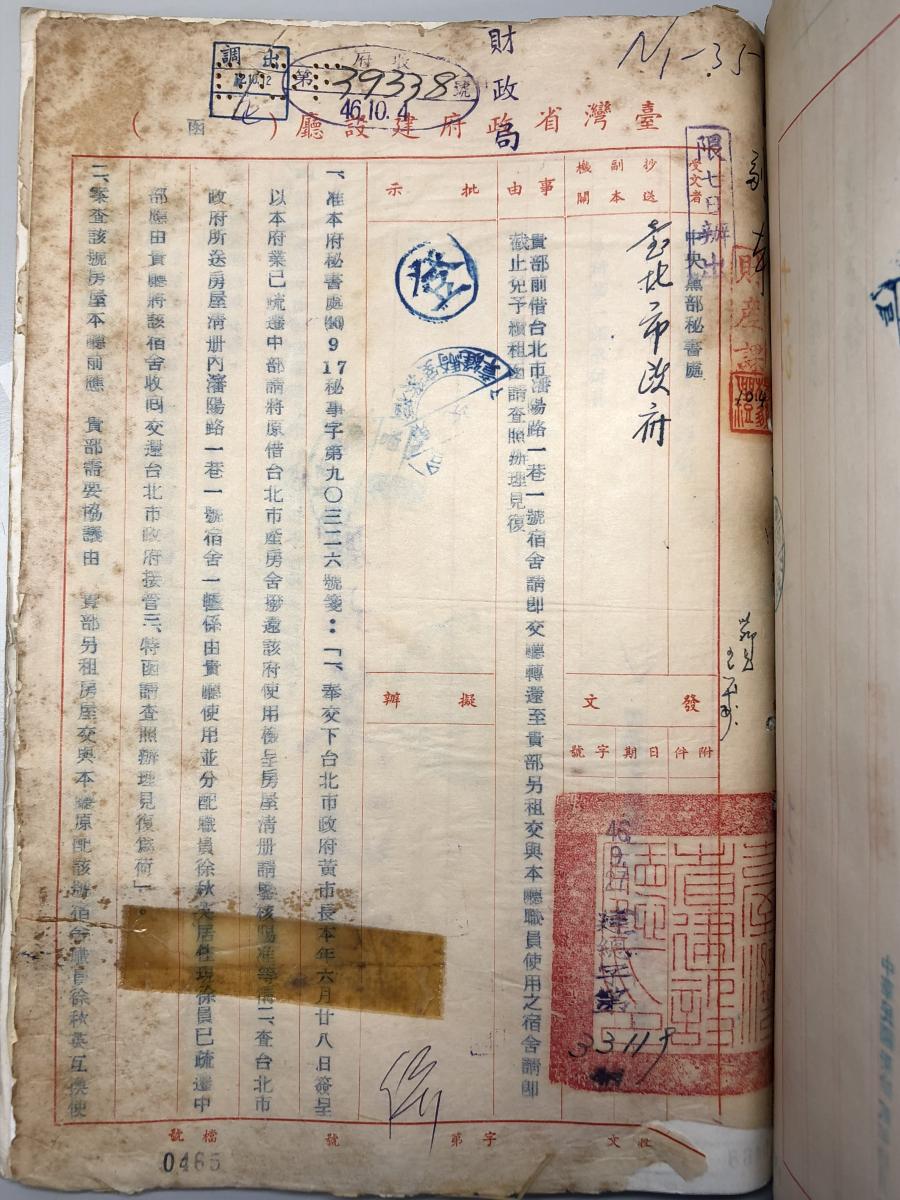 N1-35
財政局
調出
收府
第39338號
46.10.4
臺灣省政府建設廳（函）
限七日辦出
財產課
受文者
中央黨部秘書處
抄送副本機關
臺北市政府
事由
貴部前借台北市瀋陽路一巷一號宿舍請即交廳轉還至貴部另租交與本廳職員使用之宿舍請即
截止免予續租函請查照辦理見復
批示
擬辦
發文
附件
日期
字號
46.9.27
建總字第
33119
一、准本府秘書處46 9 17秘事字第九〇三二六號箋：「一、奉交下台北市政府黃市長本年六月廿八日簽呈
以本府業已疏遷中部請將原借台北市產房舍撥還該府使用檢呈房屋清册請鑒核賜准等情二、查台北市
政府所送房屋清册內瀋陽路一巷一號宿舍一幢係由貴廳使用並分配職員徐秋英居住現徐員已疏遷中
部應由貴廳將該宿舍收回交還台北市政府接管三、特函請查照辦理見復為荷」。
二、案查該號房屋本廳前應　貴部需要協議由　貴部另租房屋交與本廳原配該號宿舍職員徐秋英互換使
收文
字第
號
檔號
0465